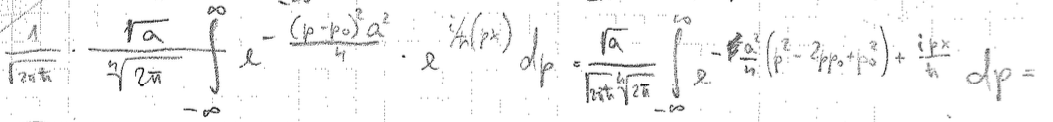 \frac{1}{\sqrt{2\pi\hbar}} \cdot \frac{\sqrt{a}}{\sqrt[4]{2\pi}} \int_{-\infty}^{\infty} e^{-\frac{(p-p_0)^2 a^2}{4}} \cdot e^{i/\hbar (px)} dp = \frac{\sqrt{a}}{\sqrt{2\pi\hbar} \sqrt[4]{2\pi}} \int_{-\infty}^{\infty} e^{-\frac{a^2}{4}(p^2 - 2pp_0 + p_0^2) + \frac{ipx}{\hbar}} dp =